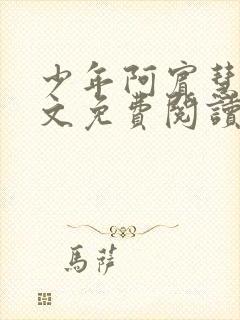 少年阿賓慧
文免費閱讀
馬薩